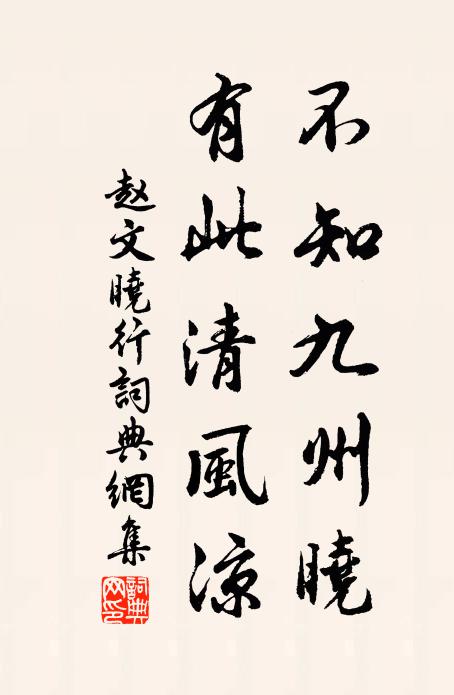 不知九州曉
有此清風涼
赵文曉行詞典網集
詞典网印